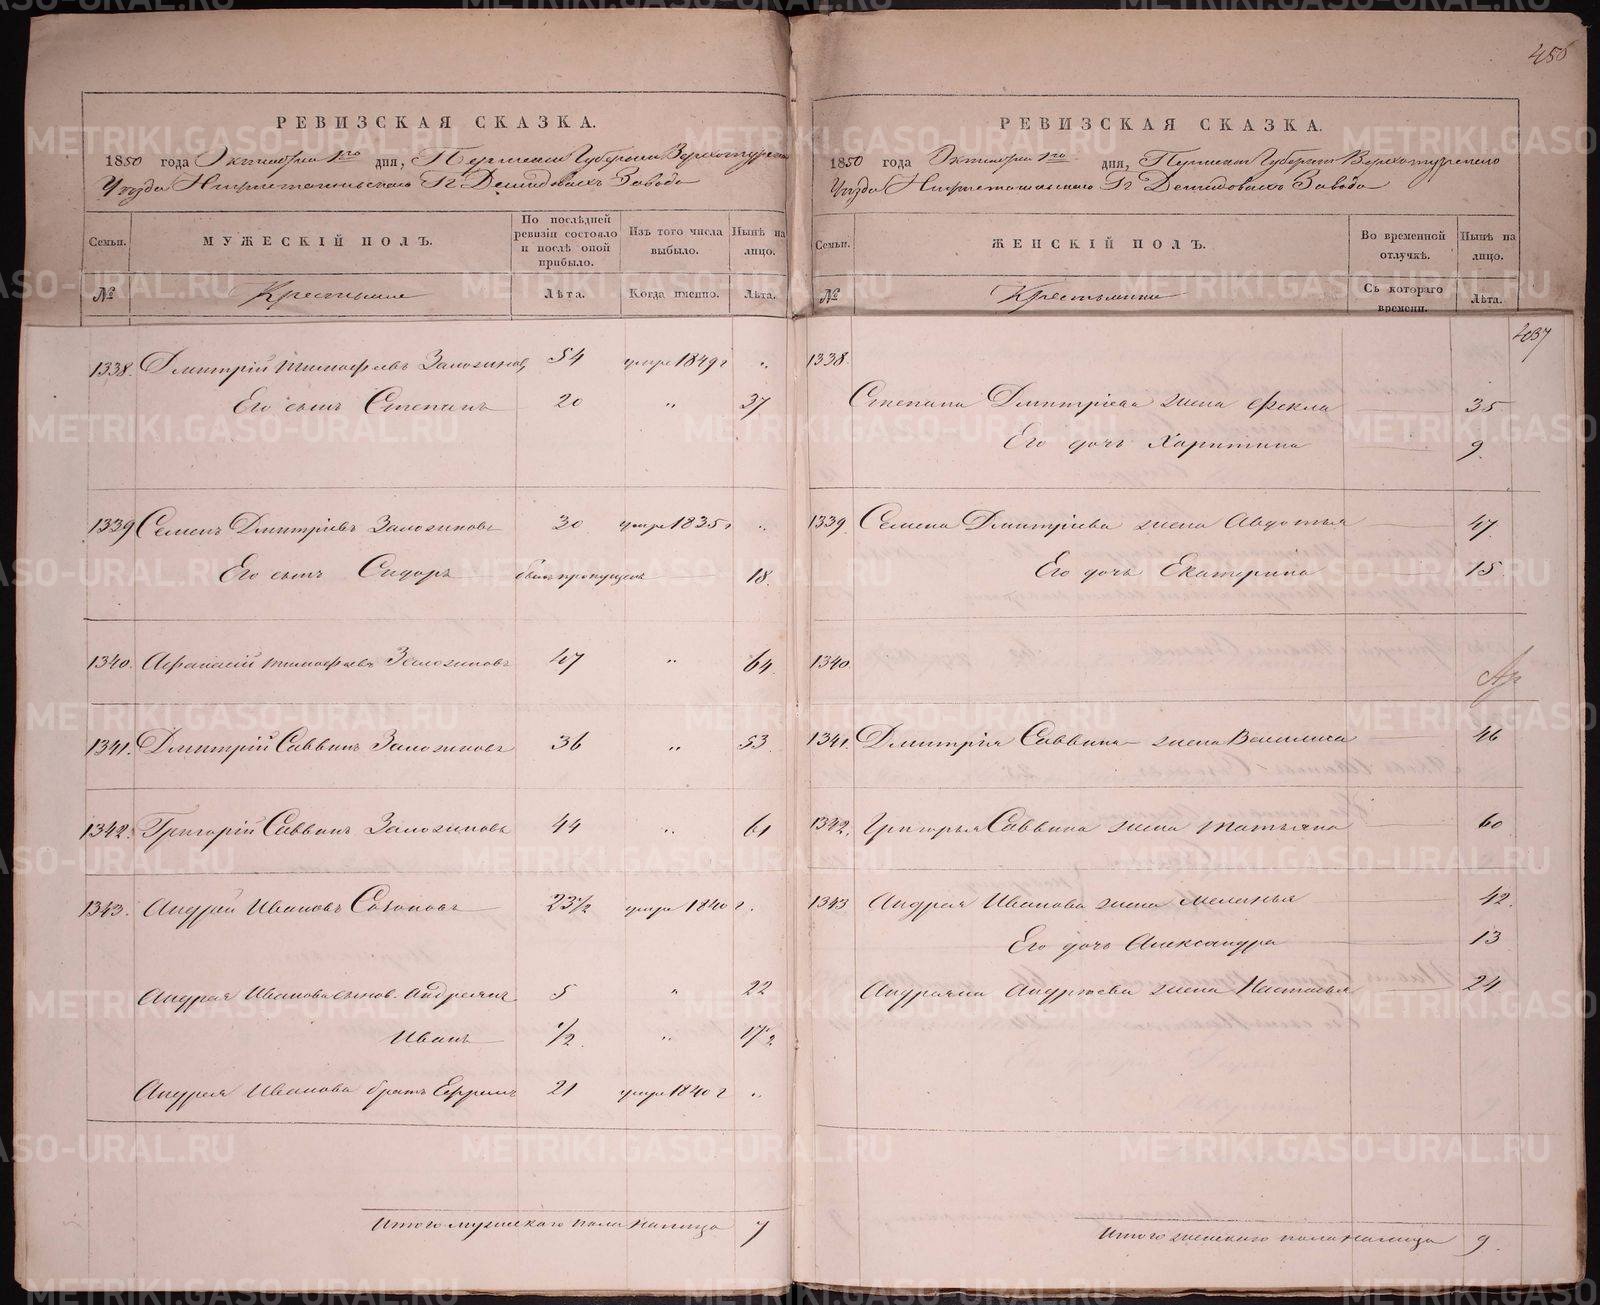 450
РЕВИЗСКАЯ СКАЗКА.
1850 года Октября 1го дня, Пермской Губернии Верхотурскаго
Уезда Нижнетагильскаго Гг Демидовыхъ Завода
Семьи.
МУЖЕСКІЙ ПОЛЪ.
По послѣдней ревизіи состояло и послѣ оной прибыло.
Изъ того числа выбыло.
Нынѣ на лицо.
№
Крестьяне
Лѣта.
Когда именно.
Лѣта.
1338. Дмитрій Тимофеевъ Заложиновъ 54 умре 1849 г "
Его сынъ Степанъ 20 " 37
1339 Семенъ Дмитріевъ Заложиновъ 30 умре 1835 г "
Его сынъ Сидоръ былъ пропущенъ 18.
1340. Афанасій Тимофеевъ Заложиновъ 47 " 64
1341. Дмитрій Саввинъ Заложиновъ 36 " 53
1342. Григорій Саввинъ Заложиновъ 44 " 61
1343. Андрей Ивановъ Сазоновъ 23 1/2 умре 1840 г.
Андрея Иванова сынов. Андреянъ 5 " 22
Иванъ 1/2 " 17 1/2
Андрея Иванова братъ Ефремъ 21 умре 1840 г "
Итого мужескаго пола налицо 7
РЕВИЗСКАЯ СКАЗКА.
1850 года Октября 1го дня, Пермской Губерніи Верхотурскаго
Уезда Нижнетагильскаго Гг Демидовыхъ Завода
Семьи.
ЖЕНСКІЙ ПОЛЪ.
Во временной отлучкѣ.
Нынѣ на лицо.
№
Крестьянки
Съ котораго времени.
Лѣта.
1338.
Степана Дмитріева жена Фекла 35
Его дочь Харитина 9.
1339. Семена Дмитріева жена Авдотья 47
Его дочь Екатерина 15.
1340.
1341. Дмитрія Саввина жена Василиса 46
1342. Григорья Саввина жена Татьяна 60
1343 Андрея Иванова жена Меланья 42.
Его дочь Александра 13
Андреяна Андреева жена Настасья 24
Итого женскаго пола налицо 9.
METRIKI.GASO-URAL.RU